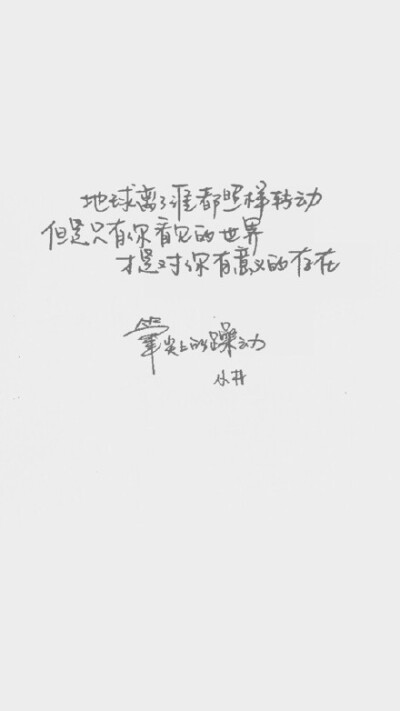 地球离了谁都照样转动
但是只有你看见的世界
才是对你有意义的存在
笔尖上的躁动
小井